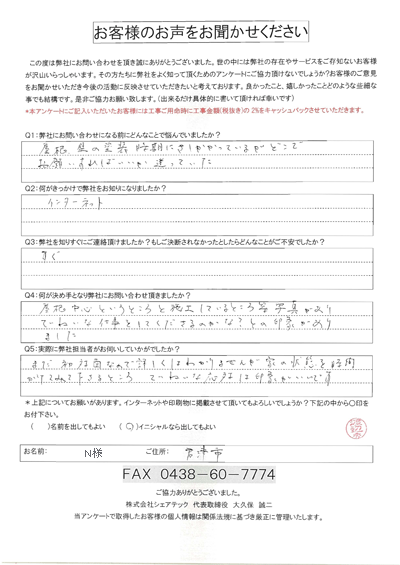 お客様のお声をお聞かせください
この度は弊社にお問い合わせを頂き誠にありがとうございました。世の中には弊社の存在やサービスをご存知ないお客様
が沢山いらっしゃいます。その方たちに弊社をよく知って頂くためのアンケートにご協力頂けないでしょうか?お客様のご意見
をお聞かせいただき今後の活動に反映させていただきたいと考えております。良かったこと、嬉しかったことどのような些細な
事でも結構です。是非ご協力お願い致します。(出来るだけ具体的に書いて頂ければ幸いです)
*本アンケートにご記入いただいたお客様には工事ご用命時に工事金額(税抜き)の2%をキャッシュバックさせていただきます。
Q1:弊社にお問い合わせになる前にどんなことで悩んでいましたか?
屋根、壁の塗装時期にさしかかっているがどこで
お願いすればいいか迷っていた
Q2:何がきっかけで弊社をお知りになりましたか?
インターネット
Q3:弊社を知りすぐにご連絡頂けましたか?もしご決断されなかったとしたらどんなことがご不安でしたか?
すぐ
Q4:何が決め手となり弊社にお問い合わせ頂きましたか?
屋根中心というところと施工しているところ写真があり
ていねいな仕事をしてくださるのかな?との印象があり
ました
Q5:実際に弊社担当者がお伺いしていかがでしたか?
まだ初段階なので詳しくはわかりませんが家の状態を時間
かけてみて下さるところ ていねいな応対は印象がいいです
*上記についてお願いがあります。インターネットや印刷物に掲載させて頂いてもよろしいでしょうか?下記の中から○印を
お付下さい。
( )名前を出してもよい (○)イニシャルなら出してもよい
お名前: N様 ご住所: 君津市
FAX 0438-60-7774
ご協力ありがとうございました。
株式会社シェアテック 代表取締役 大久保 誠二
当アンケートで取得したお客様の個人情報は関係法規に基づき厳正に管理いたします。